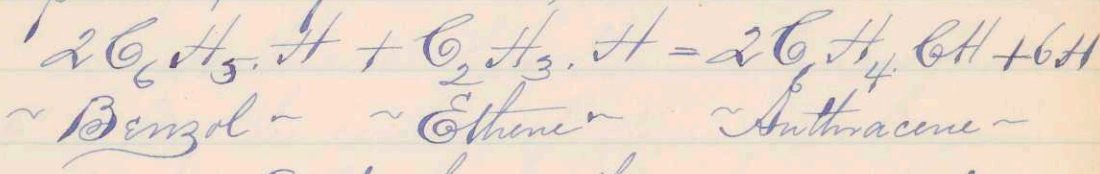 2C₆H₅.H + C₂H₃.H = 2C₆H₄.CH + 6H
~ Benzol ~ ~ Ethene ~ ~ Anthracene ~